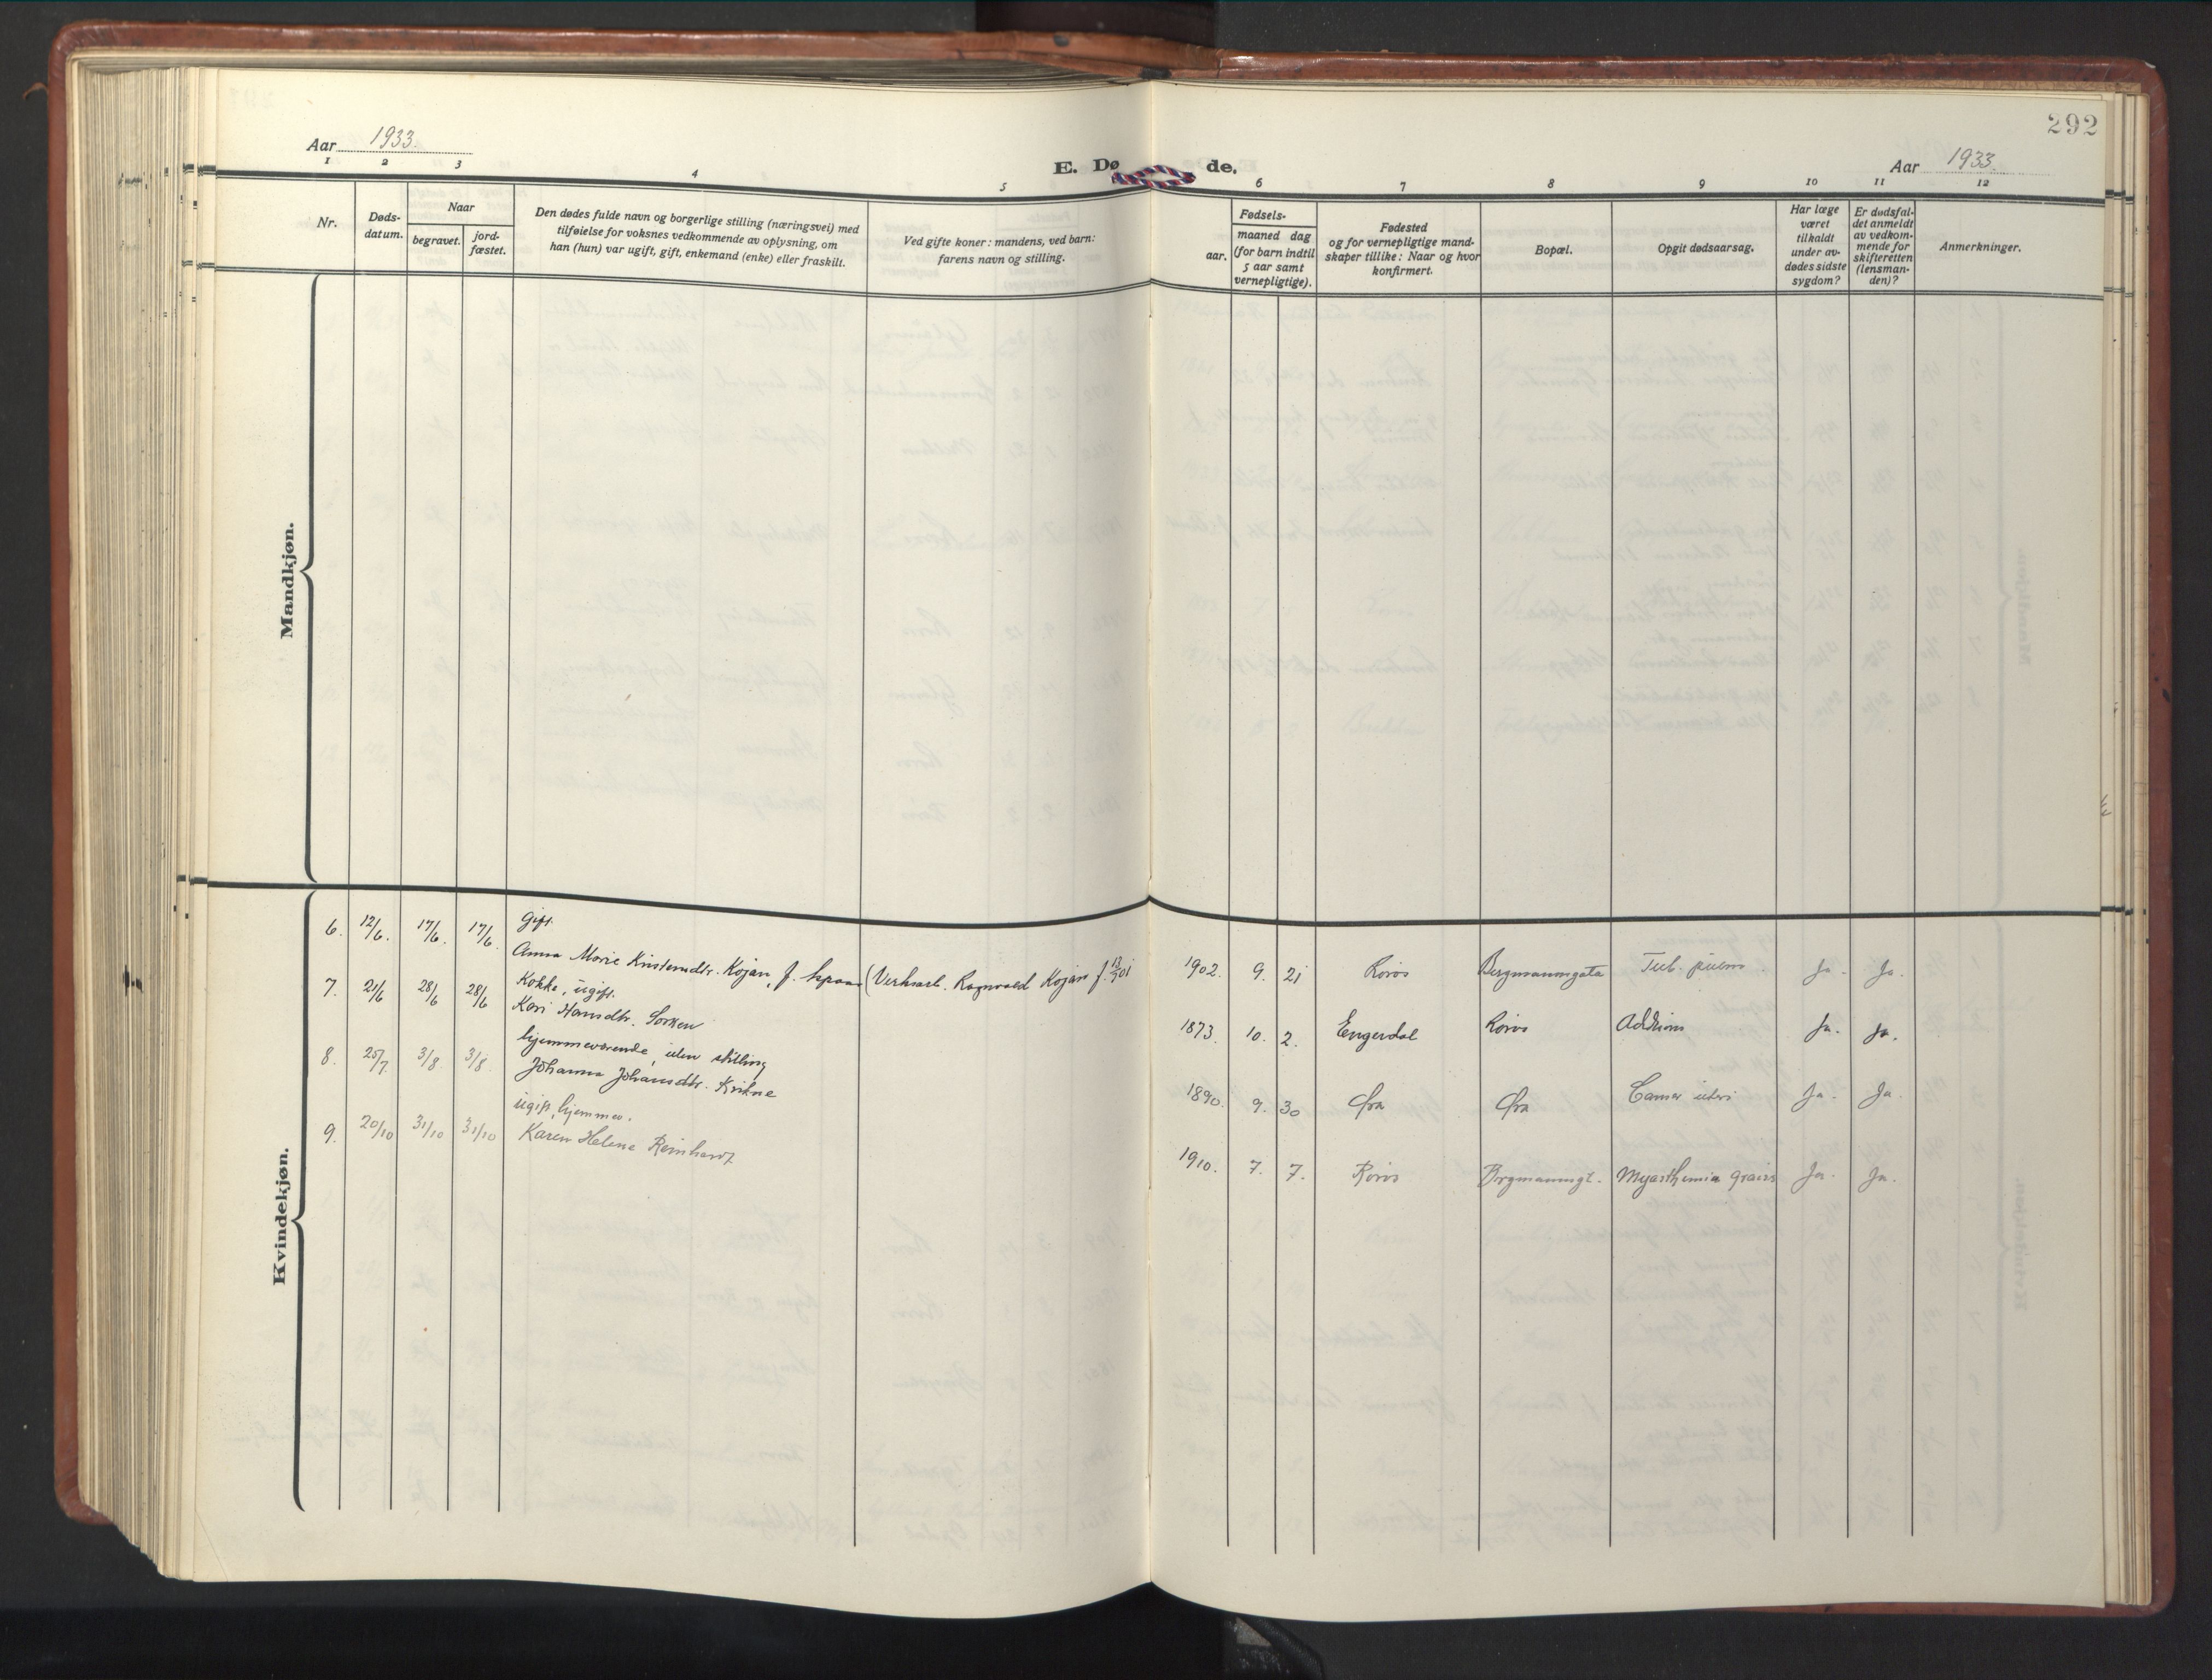 292
Aar 1933.
E. Dø de.
Aar 1933.
1 2 3 4 5 6 7 8 9 10 11 12
Nr.
Døds-
datum.
Naar
begravet.
jord-
fæstet.
Den dødes fulde navn og borgerlige stilling (næringsvei) med
tilføielse for voksnes vedkommende av oplysning, om
han (hun) var ugift, gift, enkemand (enke) eller fraskilt.
Ved gifte koner: mandens, ved barn:
farens navn og stilling.
Fødsels-
aar.
maaned dag
(for barn indtil
5 aar samt
vernepligtige).
Fødested
og for vernepligtige mand-
skaper tillike: Naar og hvor
konfirmert.
Bopæl.
Opgit dødsaarsag.
Har læge
været
tilkaldt
under av-
dødes sidste
sygdom?
Er dødsfal-
det anmeldt
av vedkom-
mende for
skifteretten
(lensman-
den)?
Anmerkninger.
Mandkjøn.
Kvindekjøn.
gift.
6. 12/6. 17/6. 17/6. Anna Marie Kristensdtr. Kojan, f. (Verksarb. Ragnvald Kojan f. 13/ 1902. 9. 21 Røros Bergmannsgata Tub. Ja. Ja.
Kokke, ugift.
7. 21/6 28/6 28/6 Kari Hansdtr. Sorken 1873. 10. 2. Engerdal Røros Ja. Ja.
hjemmeværende, uten stilling
8. 25/7. 3/8. 3/8. Johanna Johansdtr. 1890. 9. 30 Øra Øra Cancer uteri Ja. Ja.
ugift, hjemmev.
9. 20/10 31/10 31/10 Karen Helene Reinhardt 1910. 7. 7. Røros Bergmannsgt. Myasthenia gravis Ja. Ja.